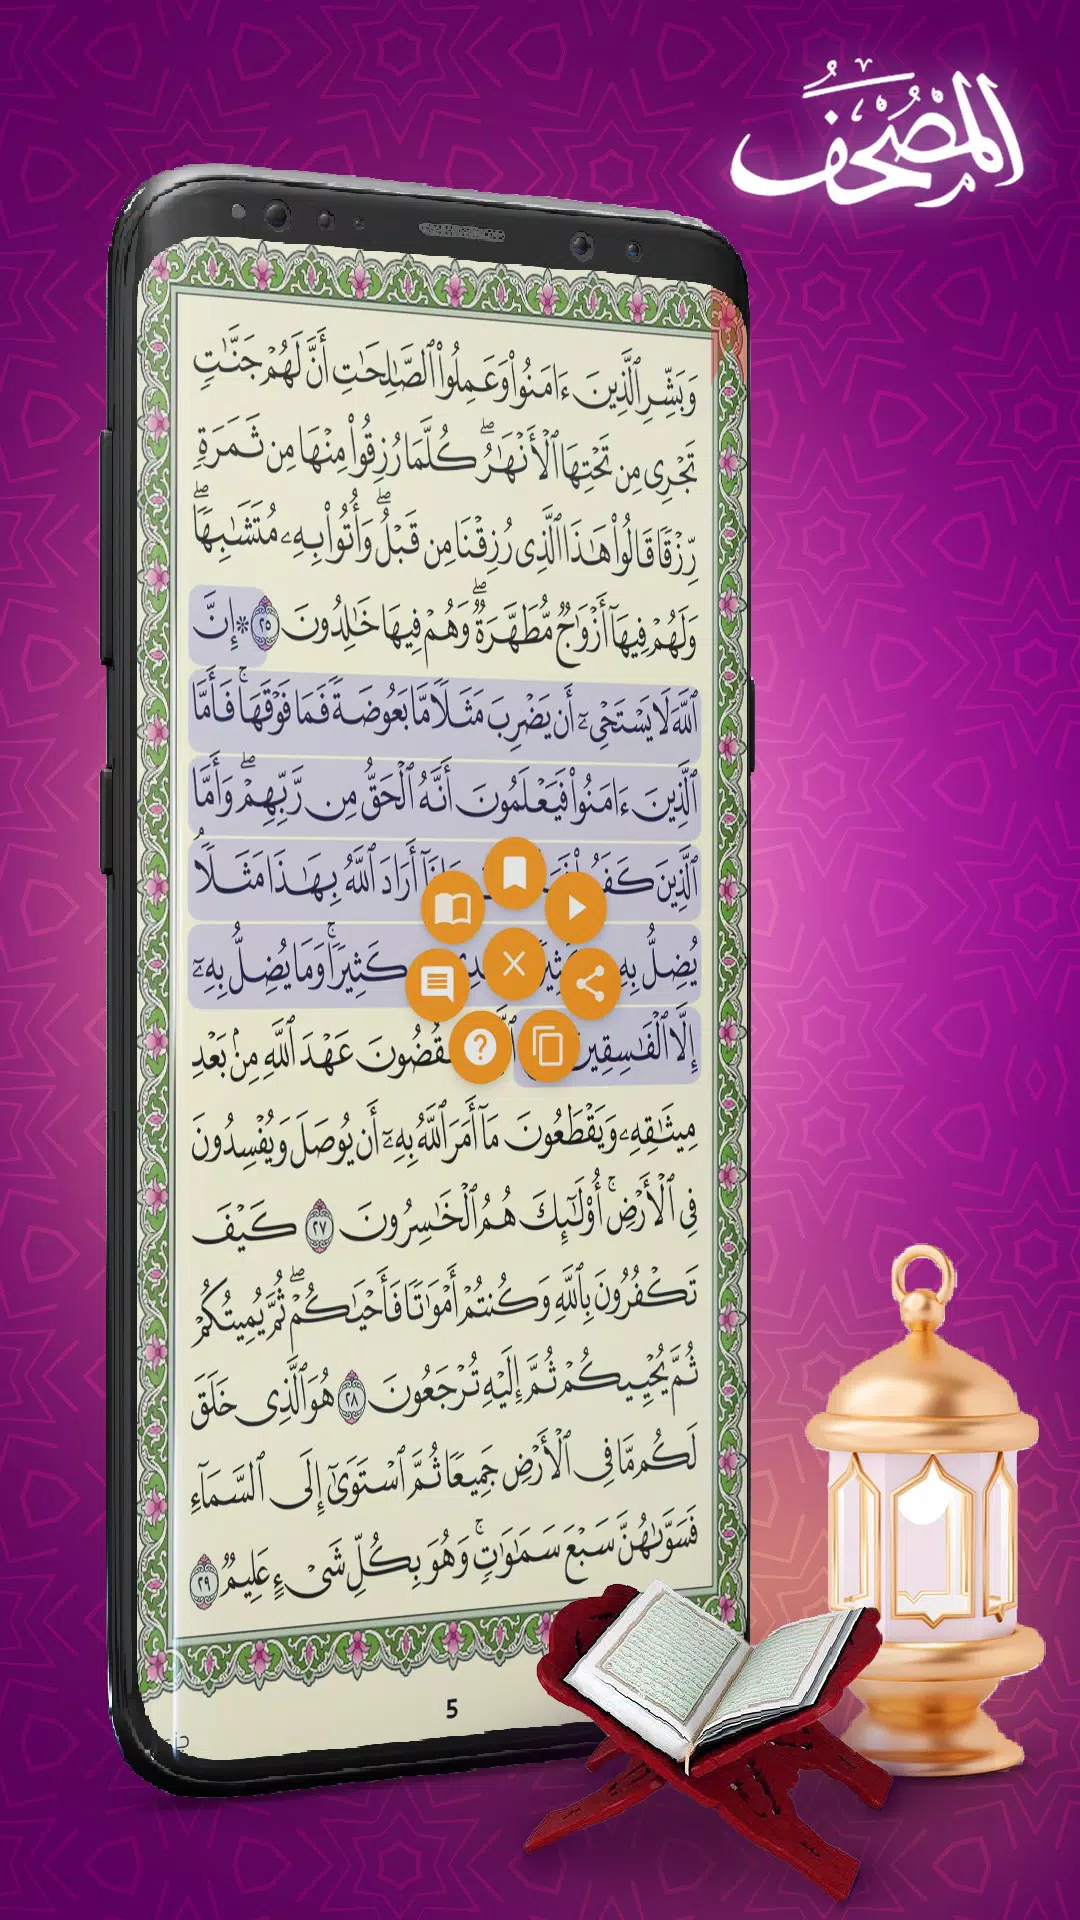 المُصْحَفُ
وَبَشِّرِ ٱلَّذِينَ ءَامَنُوا۟ وَعَمِلُوا۟ ٱلصَّٰلِحَٰتِ أَنَّ لَهُمْ جَنَّٰتٍ
تَجْرِى مِن تَحْتِهَا ٱلْأَنْهَٰرُ ۖ كُلَّمَا رُزِقُوا۟ مِنْهَا مِن ثَمَرَةٍ
رِّزْقًا قَالُوا۟ هَٰذَا ٱلَّذِى رُزِقْنَا مِن قَبْلُ ۖ وَأُتُوا۟ بِهِۦ مُتَشَٰبِهًا ۖ
وَلَهُمْ فِيهَآ أَزْوَٰجٌ مُّطَهَّرَةٌ ۖ وَهُمْ فِيهَا خَٰلِدُونَ ٢٥ * إِنَّ
ٱللَّهَ لَا يَسْتَحْىِۦٓ أَن يَضْرِبَ مَثَلًا مَّا بَعُوضَةً فَمَا فَوْقَهَا ۚ فَأَمَّا
ٱلَّذِينَ ءَامَنُوا۟ فَيَعْلَمُونَ أَنَّهُ ٱلْحَقُّ مِن رَّبِّهِمْ ۖ وَأَمَّا
ٱلَّذِينَ كَفَرُوا۟ أَرَادَ ٱللَّهُ بِهَٰذَا مَثَلًا
يُضِلُّ بِهِ كَثِيرًا ۚ وَمَا يُضِلُّ بِهِۦٓ
إِلَّا ٱلْفَٰسِقِينَ عَهْدَ ٱللَّهِ مِنۢ بَعْدِ
مِيثَٰقِهِۦ وَيَقْطَعُونَ مَآ أَمَرَ ٱللَّهُ بِهِۦٓ أَن يُوصَلَ وَيُفْسِدُونَ
فِى ٱلْأَرْضِ ۚ أُو۟لَٰٓئِكَ هُمُ ٱلْخَٰسِرُونَ ٢٧ كَيْفَ
تَكْفُرُونَ بِٱللَّهِ وَكُنتُمْ أَمْوَٰتًا فَأَحْيَٰكُمْ ۖ ثُمَّ يُمِيتُكُمْ
ثُمَّ يُحْيِيكُمْ ثُمَّ إِلَيْهِ تُرْجَعُونَ ٢٨ هُوَ ٱلَّذِى خَلَقَ
لَكُم مَّا فِى ٱلْأَرْضِ جَمِيعًا ثُمَّ ٱسْتَوَىٰٓ إِلَى ٱلسَّمَآءِ
فَسَوَّىٰهُنَّ سَبْعَ سَمَٰوَٰتٍ ۚ وَهُوَ بِكُلِّ شَىْءٍ عَلِيمٌ ٢٩
5